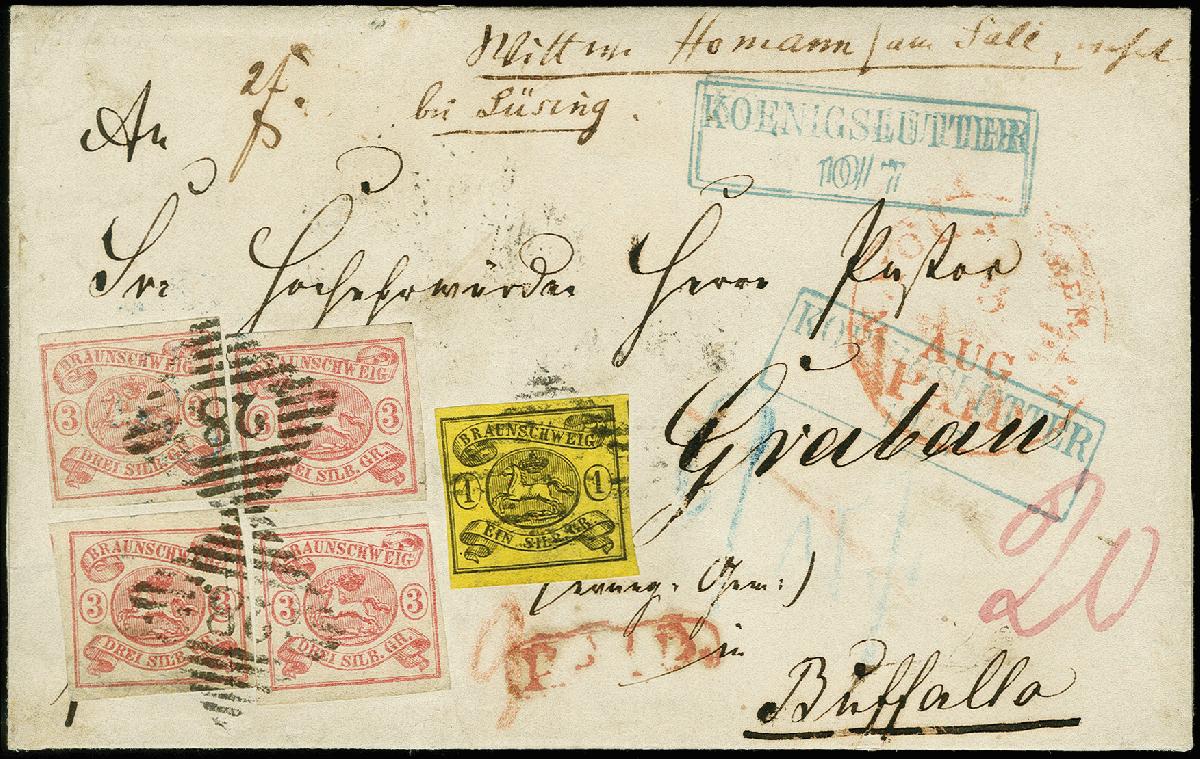 Homann / am
bei Lüsing.
An
KOENIGSLUTTER
10/7
Sr. Hochehrwürden Herrn Pastor
KOENIGSLUTTER
AUG
PAID
Grabau
BRAUNSCHWEIG
3 3
DREI SILB. GR.
BRAUNSCHWEIG
3 3
DREI SILB. GR.
28
BRAUNSCHWEIG
1 1
EIN SILB. GR.
20
BRAUNSCHWEIG
3 3
DREI SILB. GR.
BRAUNSCHWEIG
3 3
DREI SILB. GR.
28
PAID
in
Buffallo